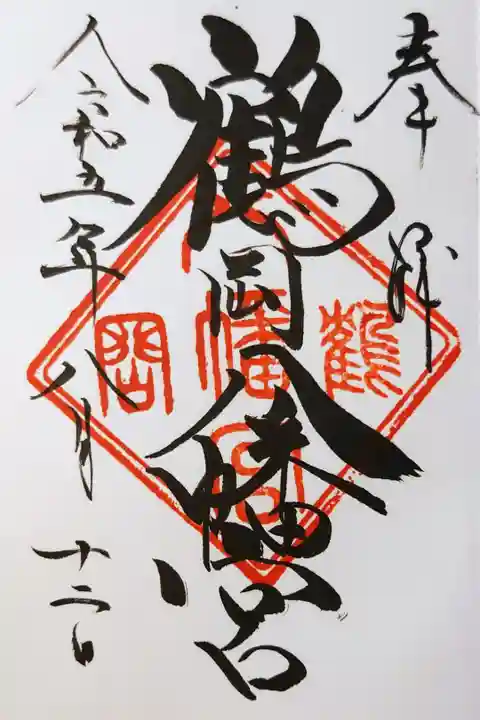 奉拝
鶴岡八幡宮
令和五年八月十二日
鶴
八幡宮
岡